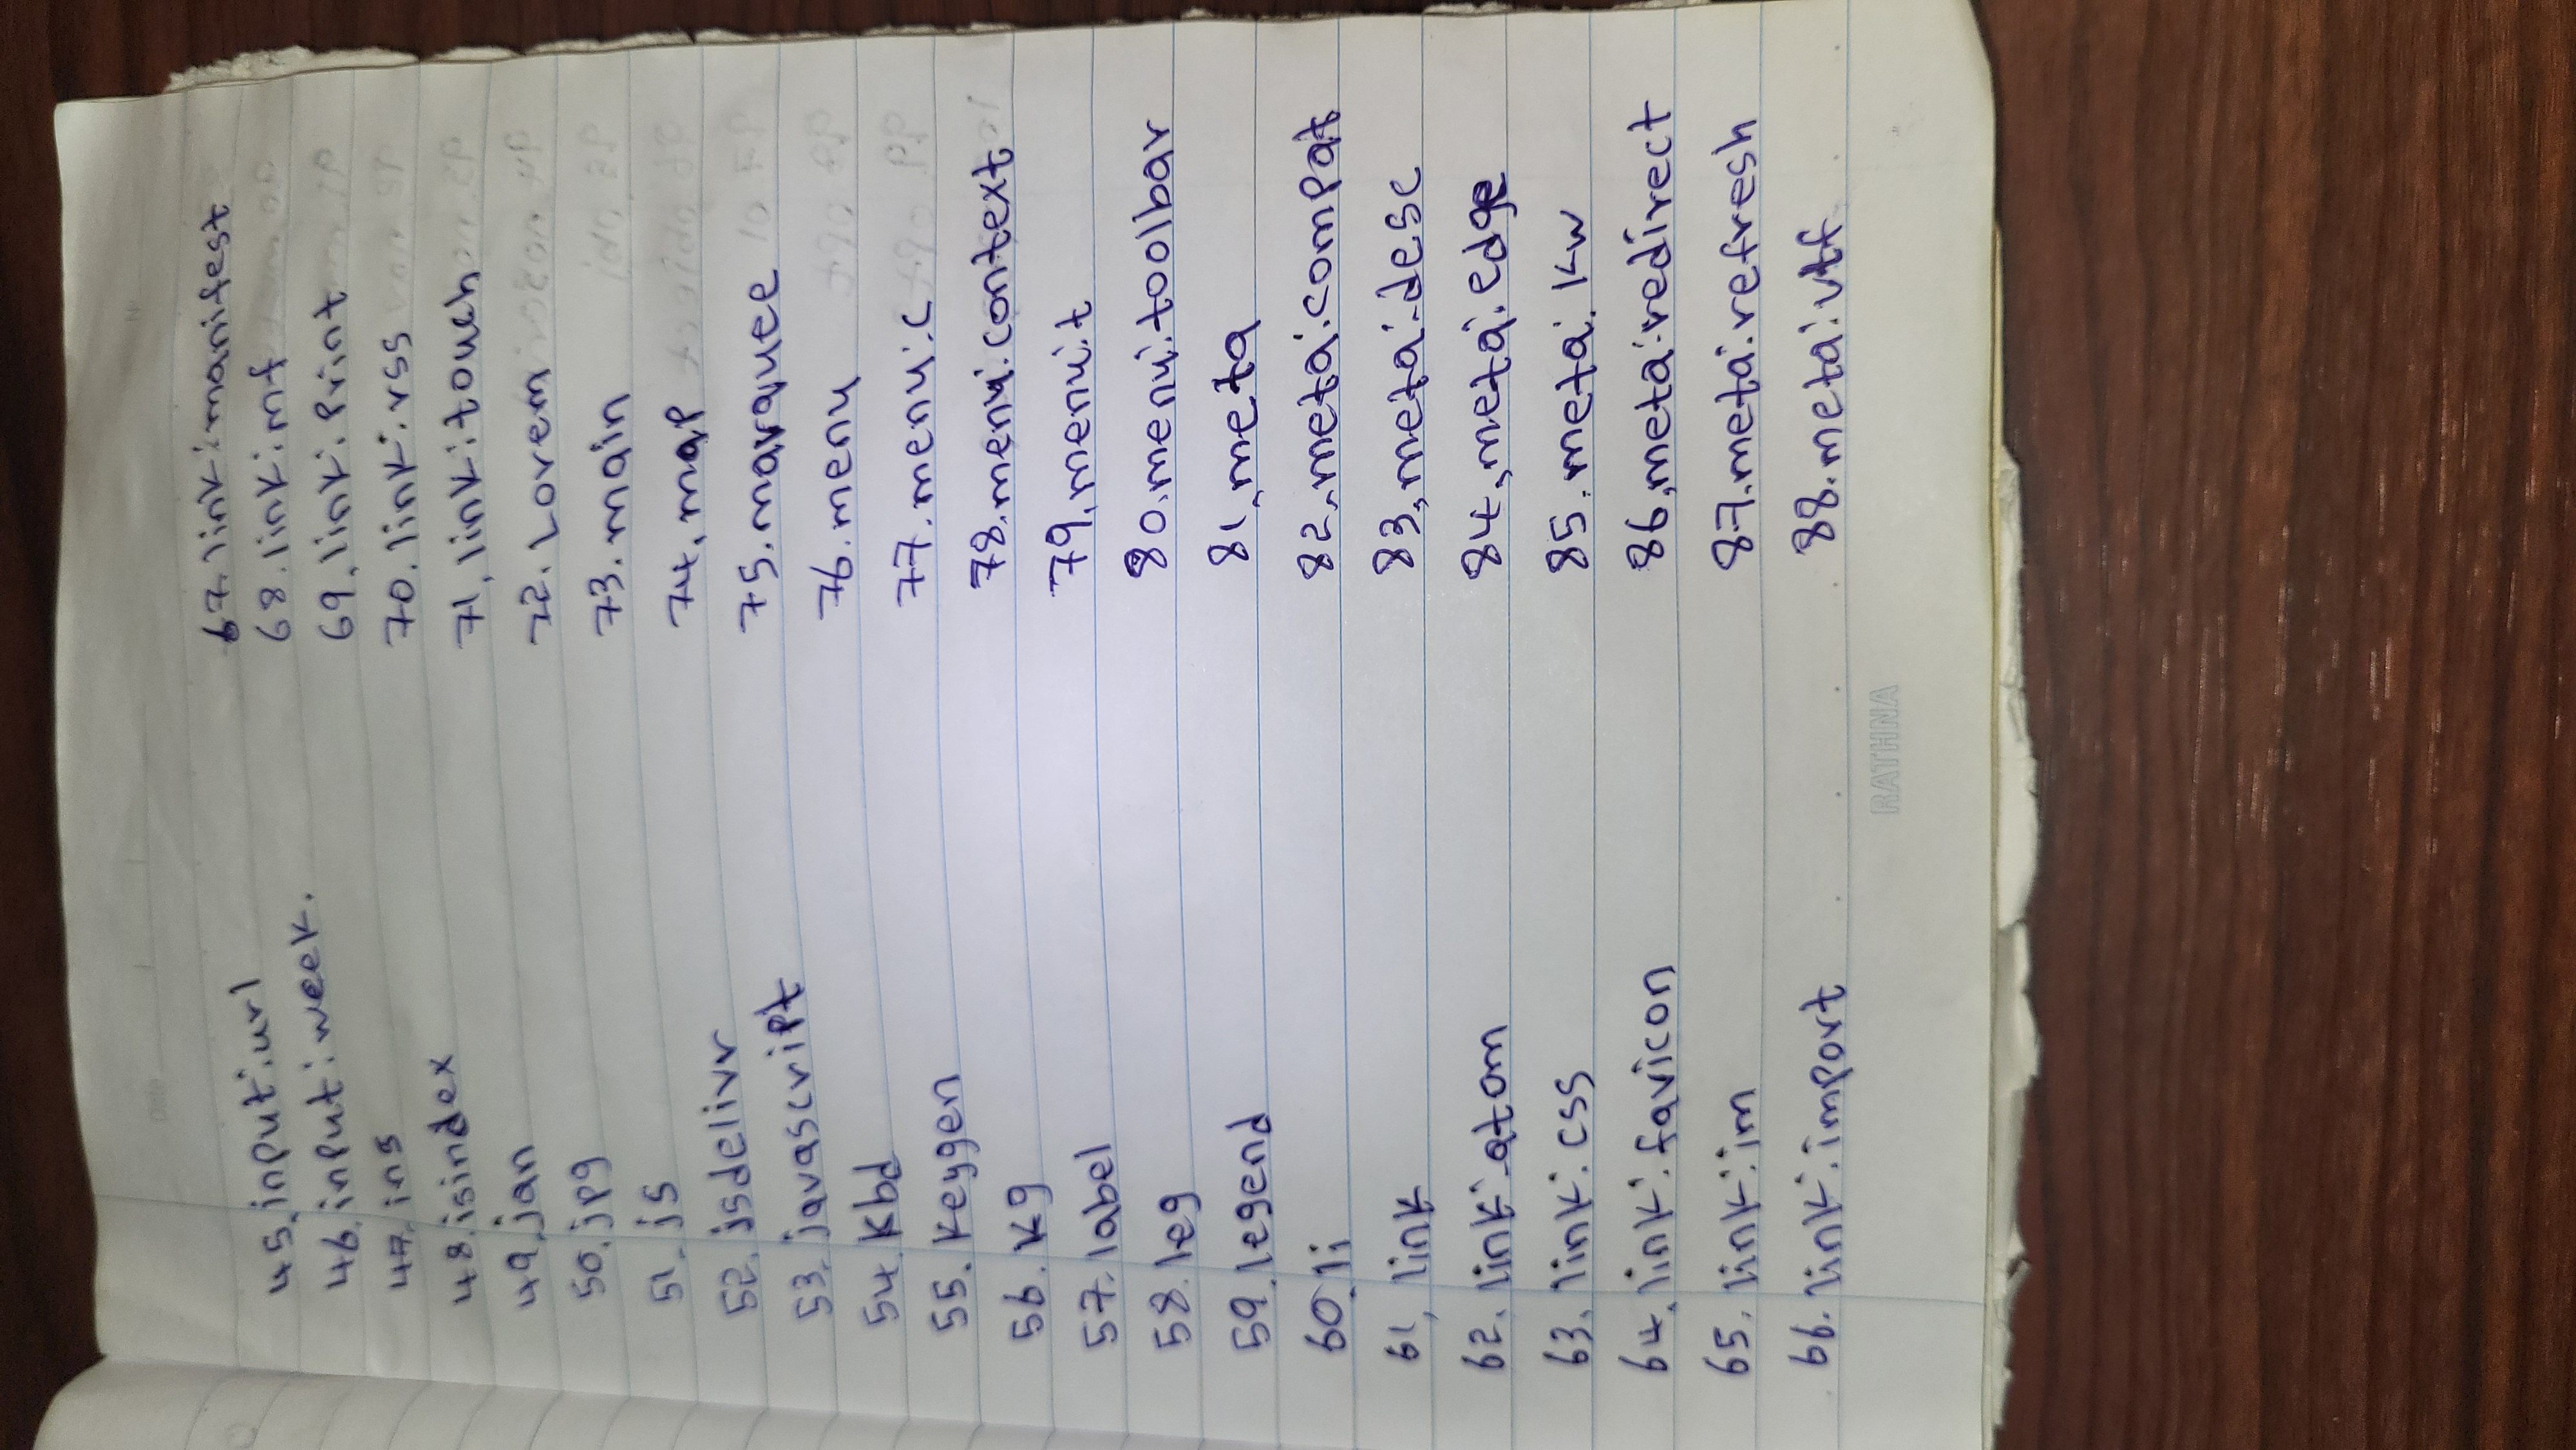 Date
45. input:url
46. input:week.
47. ins
48. isindex
49. jan
50. jpg
51. js
52. jsdelivr
53. javascript
54. kbd
55. keygen
56. kg
57. label
58. leg
59. legend
60. li
61, link
62. link:atom
63. link:css
64. link:favicon
65. link:im
66. link:import
67. link:manifest
68. link:mf
69. link:Print
70. link:rss
71, link:touch
72. Lorem
73. main
74, map
75. marquee
76. menu
77. menu:c
78. menu:context
79, menu:t
80. menu:toolbar
81, meta
82. meta:compat
83, meta:desc
84, meta:edge
85. meta:kw
86, meta:redirect
87. meta:refresh
88. meta:vtf
RATHNA